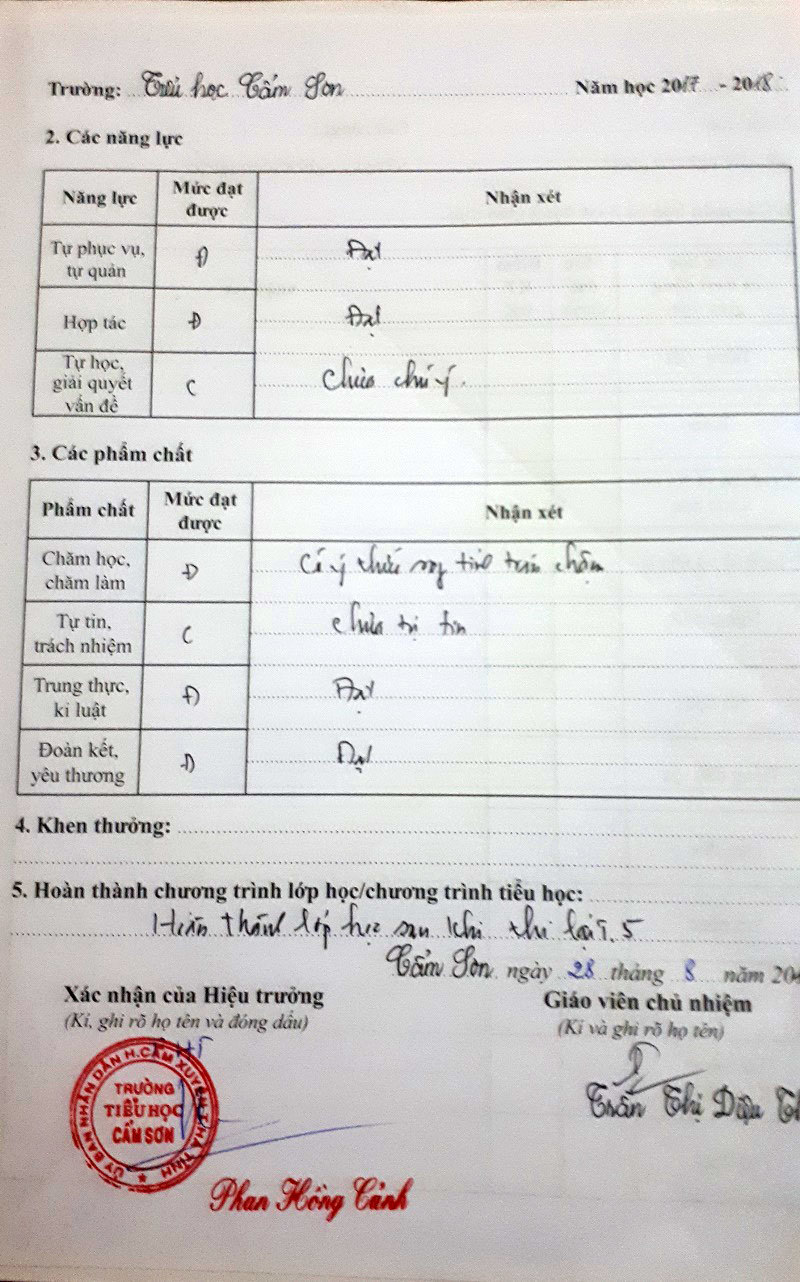 Trường: Tiểu học Cẩm Sơn Năm học 2017 - 2018
2. Các năng lực
Năng lực Mức đạt được Nhận xét
Tự phục vụ, tự quản Đ Đạt
Hợp tác Đ Đạt
Tự học, giải quyết vấn đề C Chưa chú ý.
3. Các phẩm chất
Phẩm chất Mức đạt được Nhận xét
Chăm học, chăm làm Đ Có ý thức chậm
Tự tin, trách nhiệm C chưa tự tin
Trung thực, kỉ luật Đ Đạt
Đoàn kết, yêu thương Đ Đạt
4. Khen thưởng:
5. Hoàn thành chương trình lớp học/chương trình tiểu học:
Hoàn thành lớp học sau khi thi lại
Cẩm Sơn ngày 28 tháng 8 năm 20
Xác nhận của Hiệu trưởng Giáo viên chủ nhiệm
(Kí, ghi rõ họ tên và đóng dấu) (Kí và ghi rõ họ tên)
ỦY BAN NHÂN DÂN H.CẨM XUYÊN T.HÀ TĨNH
TRƯỜNG
TIỂU HỌC
CẨM SƠN
Trần Thị Diệu
Phan Hồng Cảnh